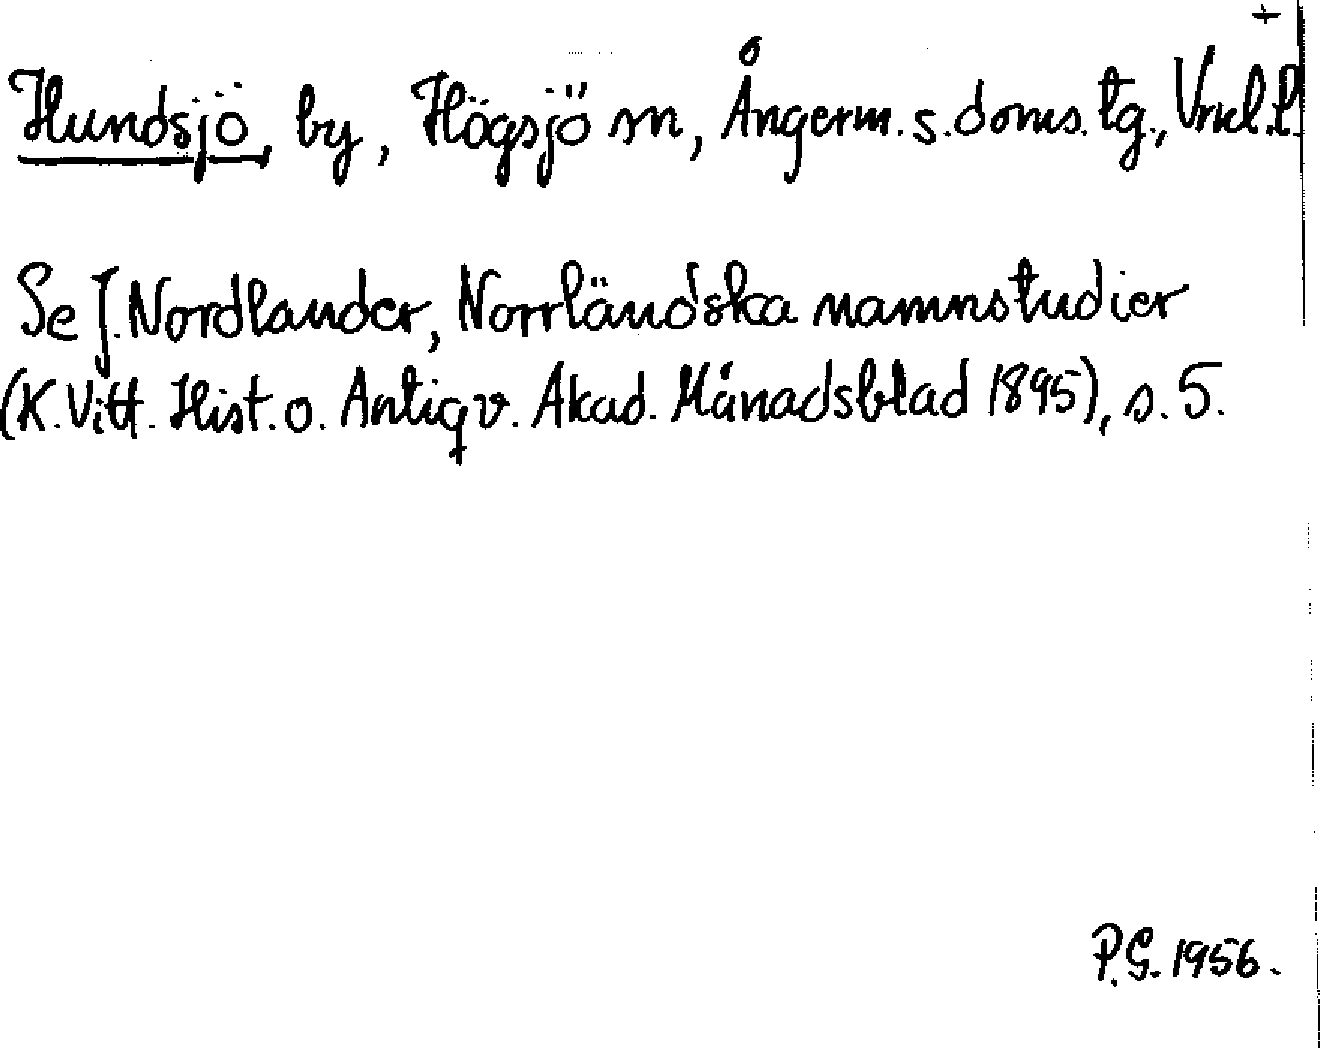 +
Hundsjö, by, Högsjö sn, Ångerm. s. doms. tg., Vnl. l.
Se J. Nordlander, Norrländska namnstudier
(K. Vitt. Hist. o. Antiqv. Akad. Månadsblad 1895), s. 5.
P.G. 1956.